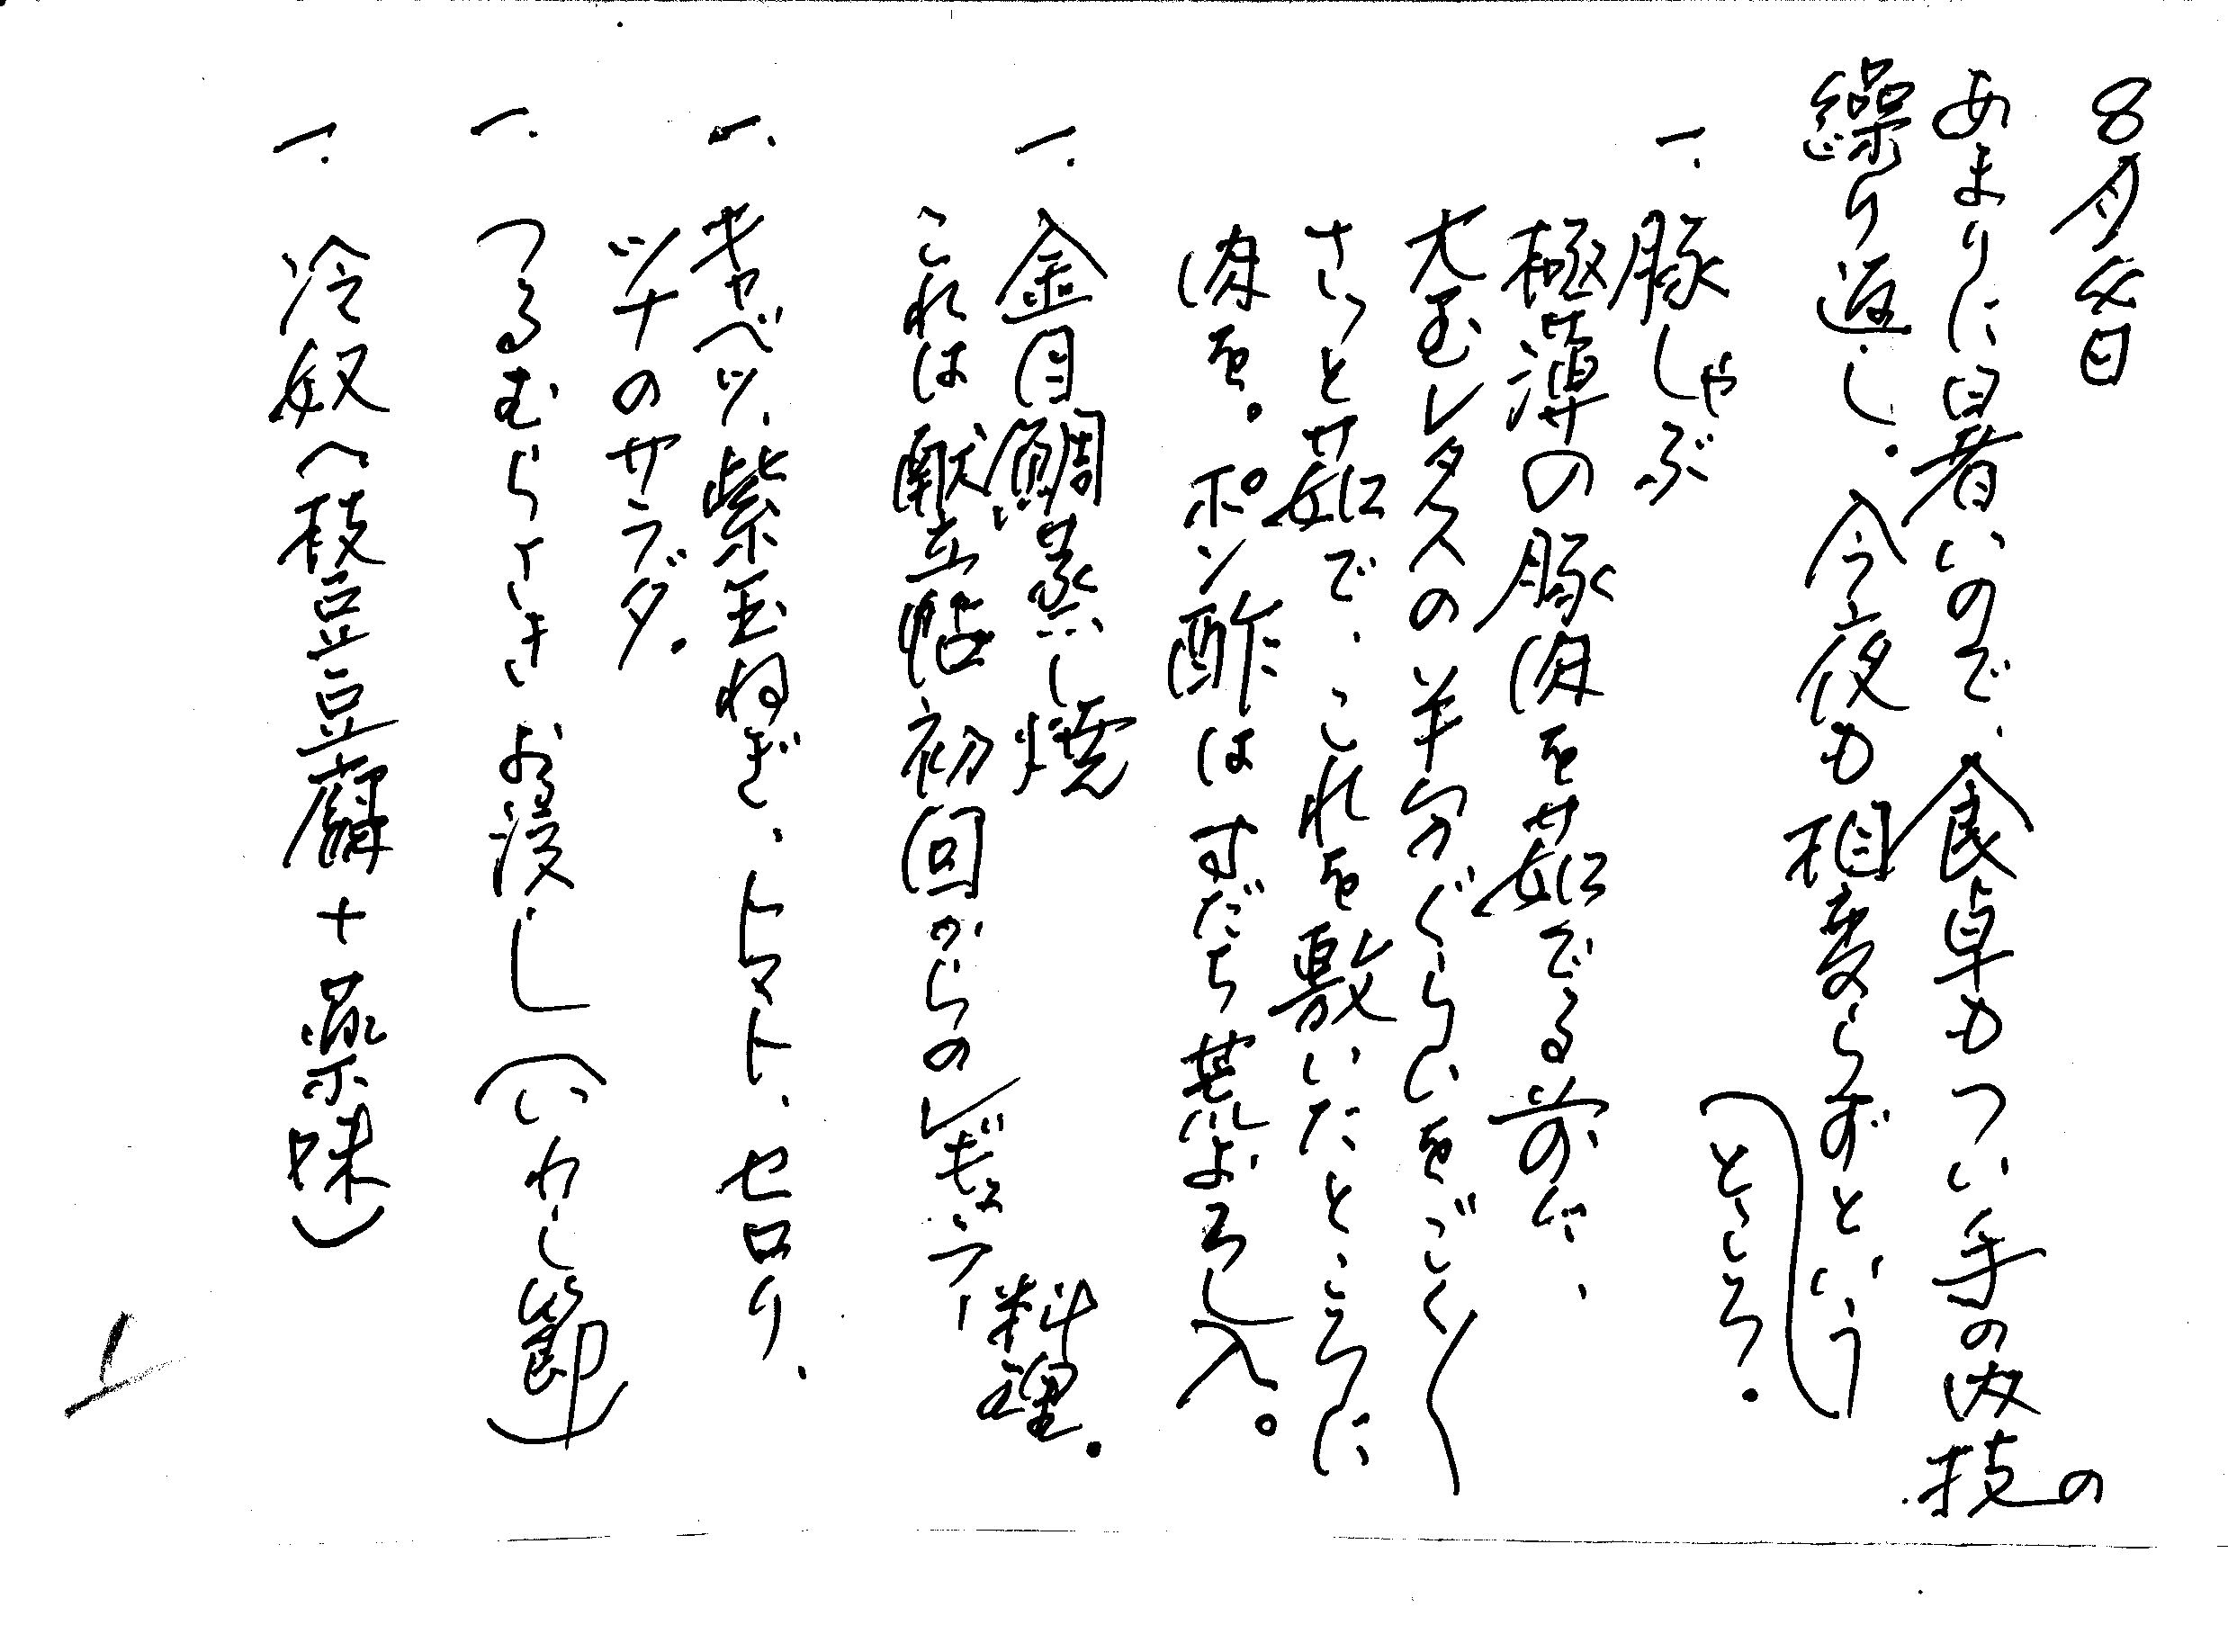 8月4日
あまりに暑いので、食卓もつい手の内技の
繰り返し。今夜も相変らずという
ところ。
一、豚しゃぶ
極薄の豚肉を茹でる前に、
大玉レタスの半分ぐらいをごく〱
さっと茹で、これを敷いたところに
肉を。ポン酢はすだち荒おろし入。
一、金目鯛蒸し焼
これは献立帖初回からのレギュラー料理。
一、キャベツ、紫玉ねぎ、トマト、セロリ、
ツナのサラダ。
一、つるむらさきお浸し(いわし節)
一、冷奴(枝豆豆腐+薬味)